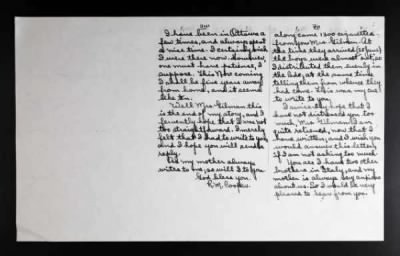 I have been in Ottawa a
few times, and always spent
a nice time. I certainly wish
I were there now. However,
one must have patience, I
suppose. This Nov coming
I shall be five years away
from home, and it seems
like ten.
Well Mrs Gilman this
is the end of my story, and I
fervently hope that I was not
too straightforward. I merely
felt that I had to write to you
and I hope you will send a
reply.
my mother always
writes to me, so will I to you
God bless you.
R.M. Cooper
along came 1300 cigarettes
from you Mrs Gilman. At
the time they arrived
the boys were almost out so
I distributed them evenly in
the at the same time
telling them from whence they
had came. This was my cue
to write to you.
I sincerely hope that I
have not distressed you too
much Mrs Gilman. I am
quite relieved, now that I
have written, and I wish you
would answer this letter,
if I am not asking too much.
You see I have two other
brothers in Italy, and my
mother is always very anxious
about us. So I would be very
pleased to hear from you.